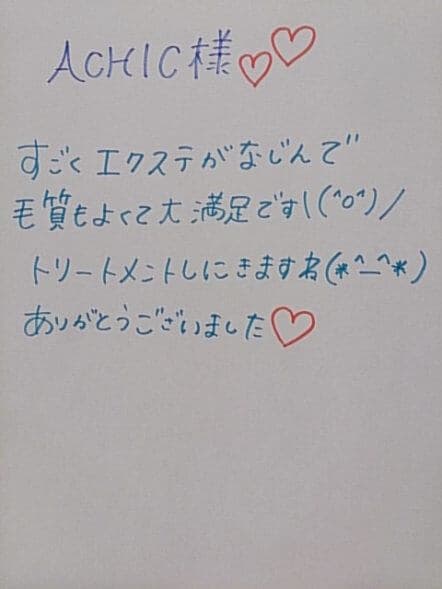 ACHIC様♡♡
すごくエクステがなじんで
毛質もよくて大満足です\(^o^)/
トリートメントしにきますね(*^_^*)
ありがとうございました♡